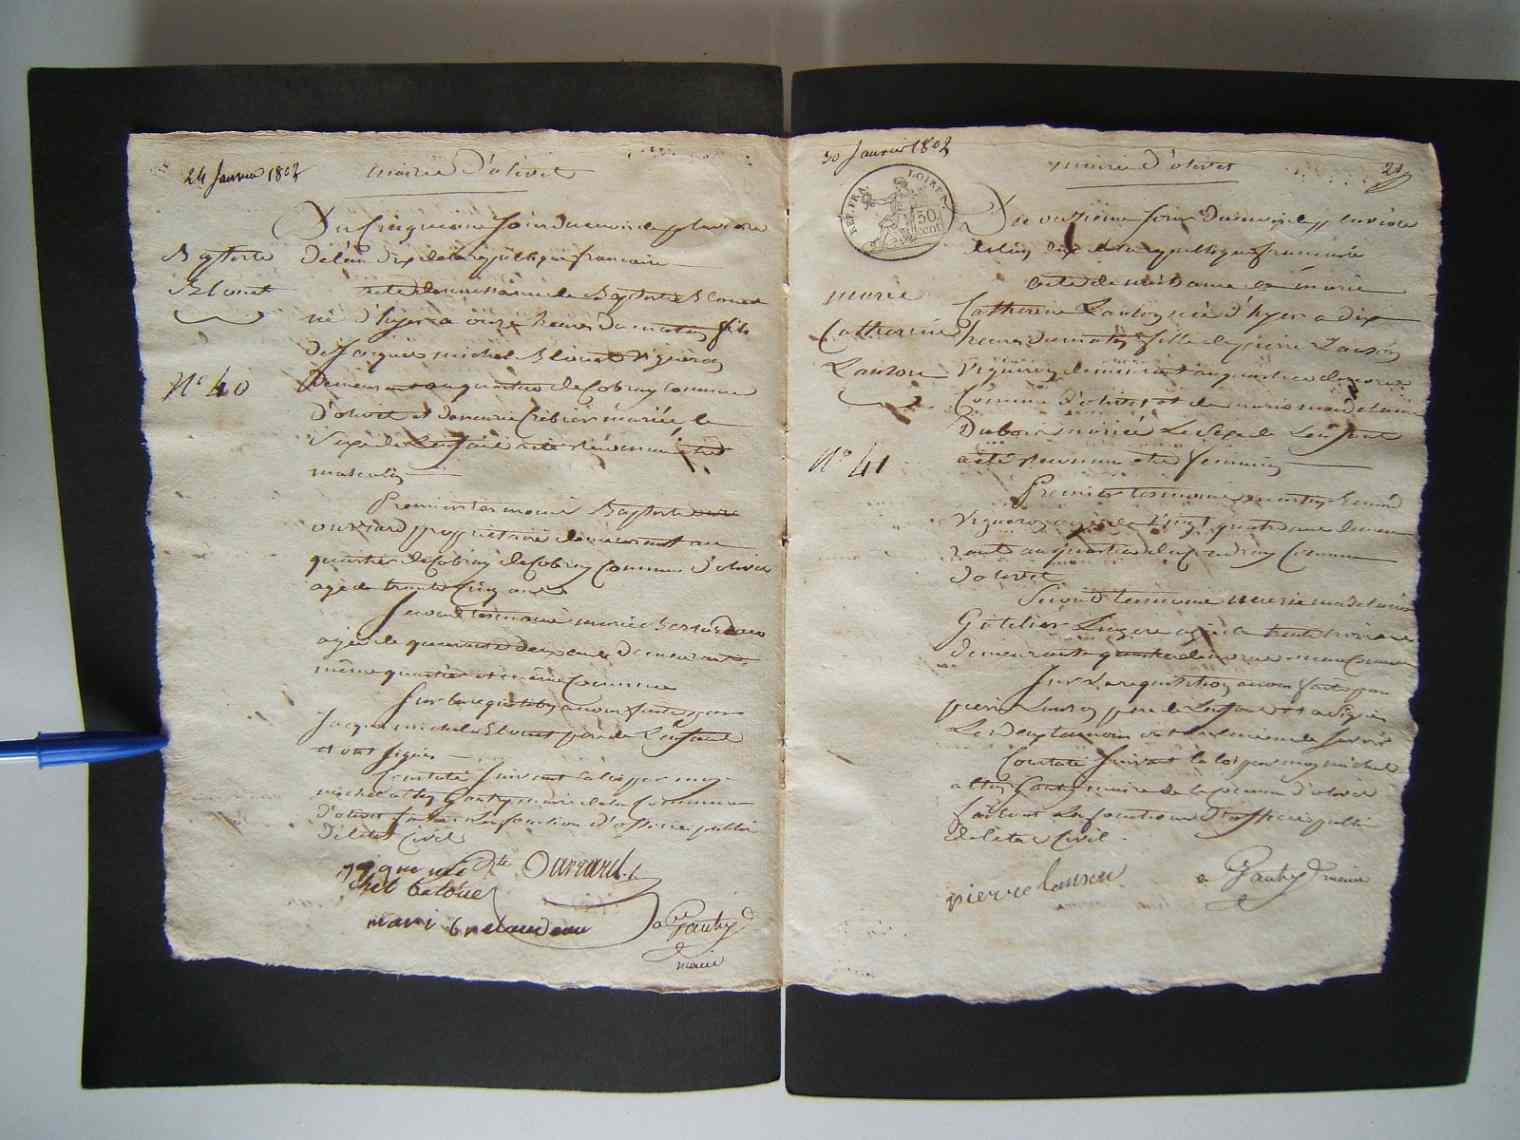 24 Janvier 1802
mairie d'olivet
Du Cinquieme Jour du mois de pluviose
Baptiste
de l'an dix de la republique francaise
Blouet
acte de naissance de Baptiste Blouet
né d'hyer a onze heures du matin fils
de Jacques michel Blouet vigneron
N° 40
demeurant au quartier de Coubray Commune
d'olivet et de marie Crebier mariée, le
Sexe de l'enfant a été reconnu être
masculin
Premier temoin Baptiste
ouvrard propriétaire demeurant au
quartier de Commune d'olivet
agé de trente Cinq ans
Second temoin marie
agée de quarante deux ans demeurant
même quartier et même Commune
Sur la requisition a nous faite par
Jacque michel Blouet pere de l'enfant
et ont signé
Constaté Suivant la loi par moy
michel Gauthy maire de la Commune
d'olivet faisant les fonction d'officier public
de l'etat Civil
Ouvrard
mari
Gauthy
maire
30 Janvier 1802
mairie d'olivet
21
REP. FRA.
LOIRET
50
Du onzieme Jour du mois de pluviose
de l'an dix de la republique francaise
acte de naissance de marie
marie
Catherine Lauson née d'hyer a dix
Catherine
heures du matin fille de pierre Lauson
Lauson
Vigneron demeurant au quartier de
Commune d'olivet et de marie madelaine
Dubois mariée Le Sexe de l'enfant
N° 41
a été reconnu etre feminin
Premier temoin
Vigneron agé de vingt quatre ans demeu
rant au quartier du Commune
d'olivet
Second temoin marie madelaine
agée de trente trois ans
demeurant quartier de même Commune
Sur La requisition a nous faite par
pierre Lauson pere de l'enfant et a signé
Les Deux temoins ont declaré ne le savoir
Constaté Suivant la loi par moy michel
Gauthy maire de la Commune d'olivet
faisant les fonctions d'officier public
de l'etat Civil.
pierre lauson
Gauthy maire